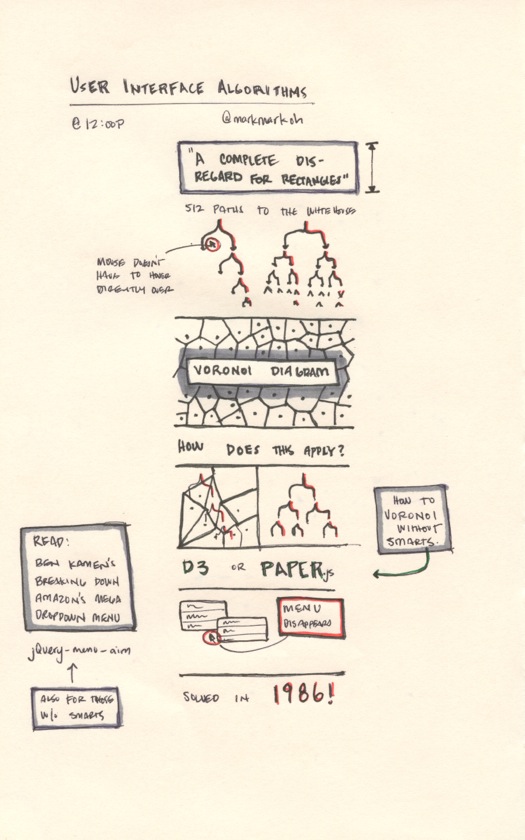 USER INTERFACE ALGORITHMS
@ 12:00P
@markmarkoh
"A COMPLETE DIS-
REGARD FOR RECTANGLES"
512 PATHS TO THE WHITEHOUSE
MOUSE DOESN'T
HAVE TO HOVER
DIRECTLY OVER
VORONOI DIAGRAM
HOW DOES THIS APPLY?
HOW TO
VORONOI
WITHOUT
SMARTS.
D3 OR PAPER.js
READ:
BEN KAMEN'S
BREAKING DOWN
AMAZON'S MEGA
DROPDOWN MENU
jQuery-menu-aim
ALSO FOR THOSE
W/O SMARTS
MENU
DISAPPEARS
SOLVED IN 1986!